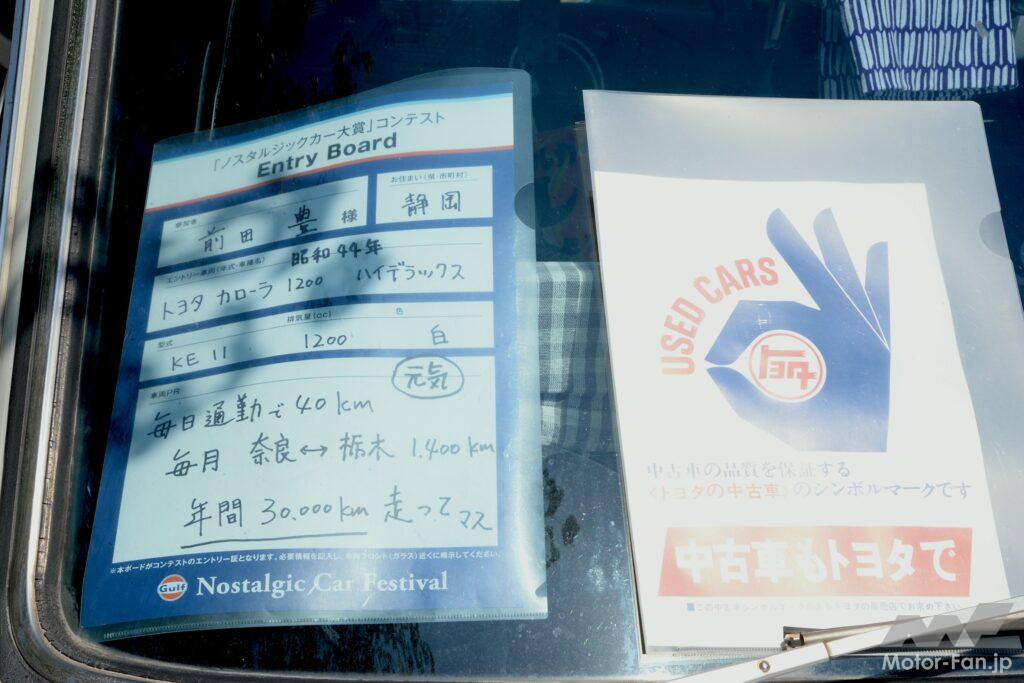 「ノスタルジックカー大賞」コンテスト
Entry Board
参加者
前田 豊 様
お住まい(県・市町村)
静岡
エントリー車両(年式・車種名)
昭和44年
トヨタ カローラ 1200 ハイデラックス
型式
KE 11
排気量(cc)
1200
色
白
車両PR
元気
毎日通勤で 40 km
毎月 奈良↔栃木 1.400 km
年間 30.000 km 走ってマス
※本ボードがコンテストのエントリー証となります。必要情報を記入し、車両フロント(ガラス)近くに掲示してください。
Gulf Nostalgic Car Festival
USED CARS
トヨタ
中古車の品質を保証する
〈トヨタの中古車〉のシンボルマークです
中古車もトヨタで
■この中古車シンボルマークのあるトヨタの販売店でお求め下さい
Motor-Fan.jp